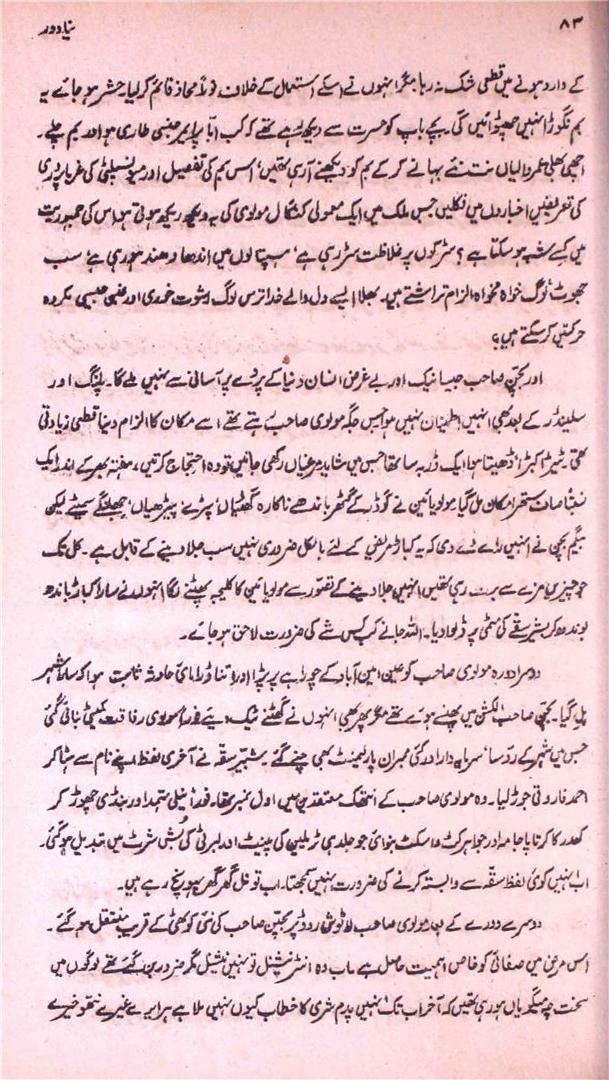 ۸۳
نیا دور
کے وارد ہونے میں قطعی شک نہ رہا مگر انہوں نے اسکے استعمال کے خلاف فوراً محاذ قائم کر لیا۔ حشر ہو جائے یہ
بم نگوڑا انہیں چھڑوائیں گی۔ بچے باپ کو حسرت سے دیکھ رہے تھے کہ کب ابا پر پھر بیہوشی طاری ہو اور بم چلے۔
اچھی بھلی عمر والیاں نت نئے بہانے کر کے بم کو دیکھنے آ رہی تھیں، اس بم کی تفصیل اور میونسپلٹی کی غربا پروری
کی تعریفیں اخباروں میں نکلیں جس ملک میں ایک معمولی کنگال مولوی کی یہ دیکھ ریکھ ہوتی ہو اس کی جمہوریت
میں کسے شبہ ہو سکتا ہے؟ سڑکوں پر غلاظت سڑ رہی ہے، ہسپتالوں میں اندھا دھند ہو رہی ہے، سب
جھوٹ، لوگ خواہ مخواہ الزام تراشتے ہیں۔ بھلا ایسے دل والے خدا ترس لوگ رشوت خوری اور غبن جیسی مکروہ
حرکتیں کر سکتے ہیں؟
اور بجّن صاحب جیسا نیک اور بے غرض انسان دنیا کے پردے پر آسانی سے نہیں ملے گا۔ پلنگ اور
سلینڈر کے بعد بھی انہیں اطمینان نہیں ہوا جس جگہ مولوی صاحب رہتے تھے اسے مکان کا الزام دینا قطعی زیادتی
تھی۔ ٹیڑا بکڑا ڈھیتا ہوا ایک ڈربہ سا تھا جس میں شاید مرغیاں رکھی جاتیں تو وہ احتجاج کرتیں، ہفتہ بھر کے اندر ایک
نسبتاً صاف ستھرا مکان مل گیا مولویائین نے گودڑ کے گٹھر باندھے ناکارہ گھٹیاں، پڑے، پیڑھیاں، جھلنگے سمیٹے لیکن
بیگم بجّی نے انہیں رائے دے دی کہ یہ کباڑ مریض کے لئے بالکل ضروری نہیں سب جلا دینے کے قابل ہے۔ کل تک
جو چیزیں مزے سے برت رہی تھیں انہیں جلا دینے کے تصور سے مولویائین کا کلیجہ پھٹنے لگا انہوں نے سارا کباڑ باندھ
بوندھ کر بشیر سقے کی مٹی پر ڈلوا دیا۔ اللہ جانے کب کس شے کی ضرورت لاحق ہو جائے۔
دوسرا دورہ مولوی صاحب کو عین امین آباد کے چوراہے پر پڑا اور اتنا ڈرامائی حادثہ ثابت ہوا کہ سارا شہر
ہل گیا۔ بجّن صاحب الکشن میں پھنسے ہوئے تھے مگر پھر بھی انہوں نے گھٹنے ٹیک دیئے فوراً مولوی رفاقت کمیٹی بنائی گئی
جس میں شہر کے رؤسا، سرمایہ دار اور کئی ممبران پارلیمنٹ بھی چنے گئے۔ بشیر سقہ نے آخری لفظ اپنے نام سے ہٹا کر
احمد فاروقی جوڑ لیا۔ وہ مولوی صاحب کے انتھک معتقدین میں اول نمبر تھا۔ فوراً نیلی تہمد اور بنڈی چھوڑ کر
کھدر کا کرتا پاجامہ اور جواہر کٹ واسکٹ بنوائی جو جلد ہی ٹریلین کی پینٹ اور لبرٹی کی بُش شرٹ میں تبدیل ہو گئی۔
اب انہیں کوئی لفظ سقّہ سے وابستہ کرنے کی ضرورت نہیں سمجھتا۔ اب تو نل گھر گھر پہونچ رہے ہیں۔
دوسرے دورے کے بعد مولوی صاحب لاٹوش روڈ پر بجّن صاحب کی نئی کوٹھی کے قریب منتقل ہو گئے۔
اس مرض میں صفائی کو خاص اہمیت حاصل ہے اب وہ انٹرنیشنل تو نہیں نیشنل فگر ضرور بن گئے تھے لوگوں میں
سخت چہ میگوئیاں ہو رہی تھیں کہ آخر اب تک انہیں پدم شری کا خطاب کیوں نہیں ملا ہے ہر ایرے غیرے نتھو خیرے